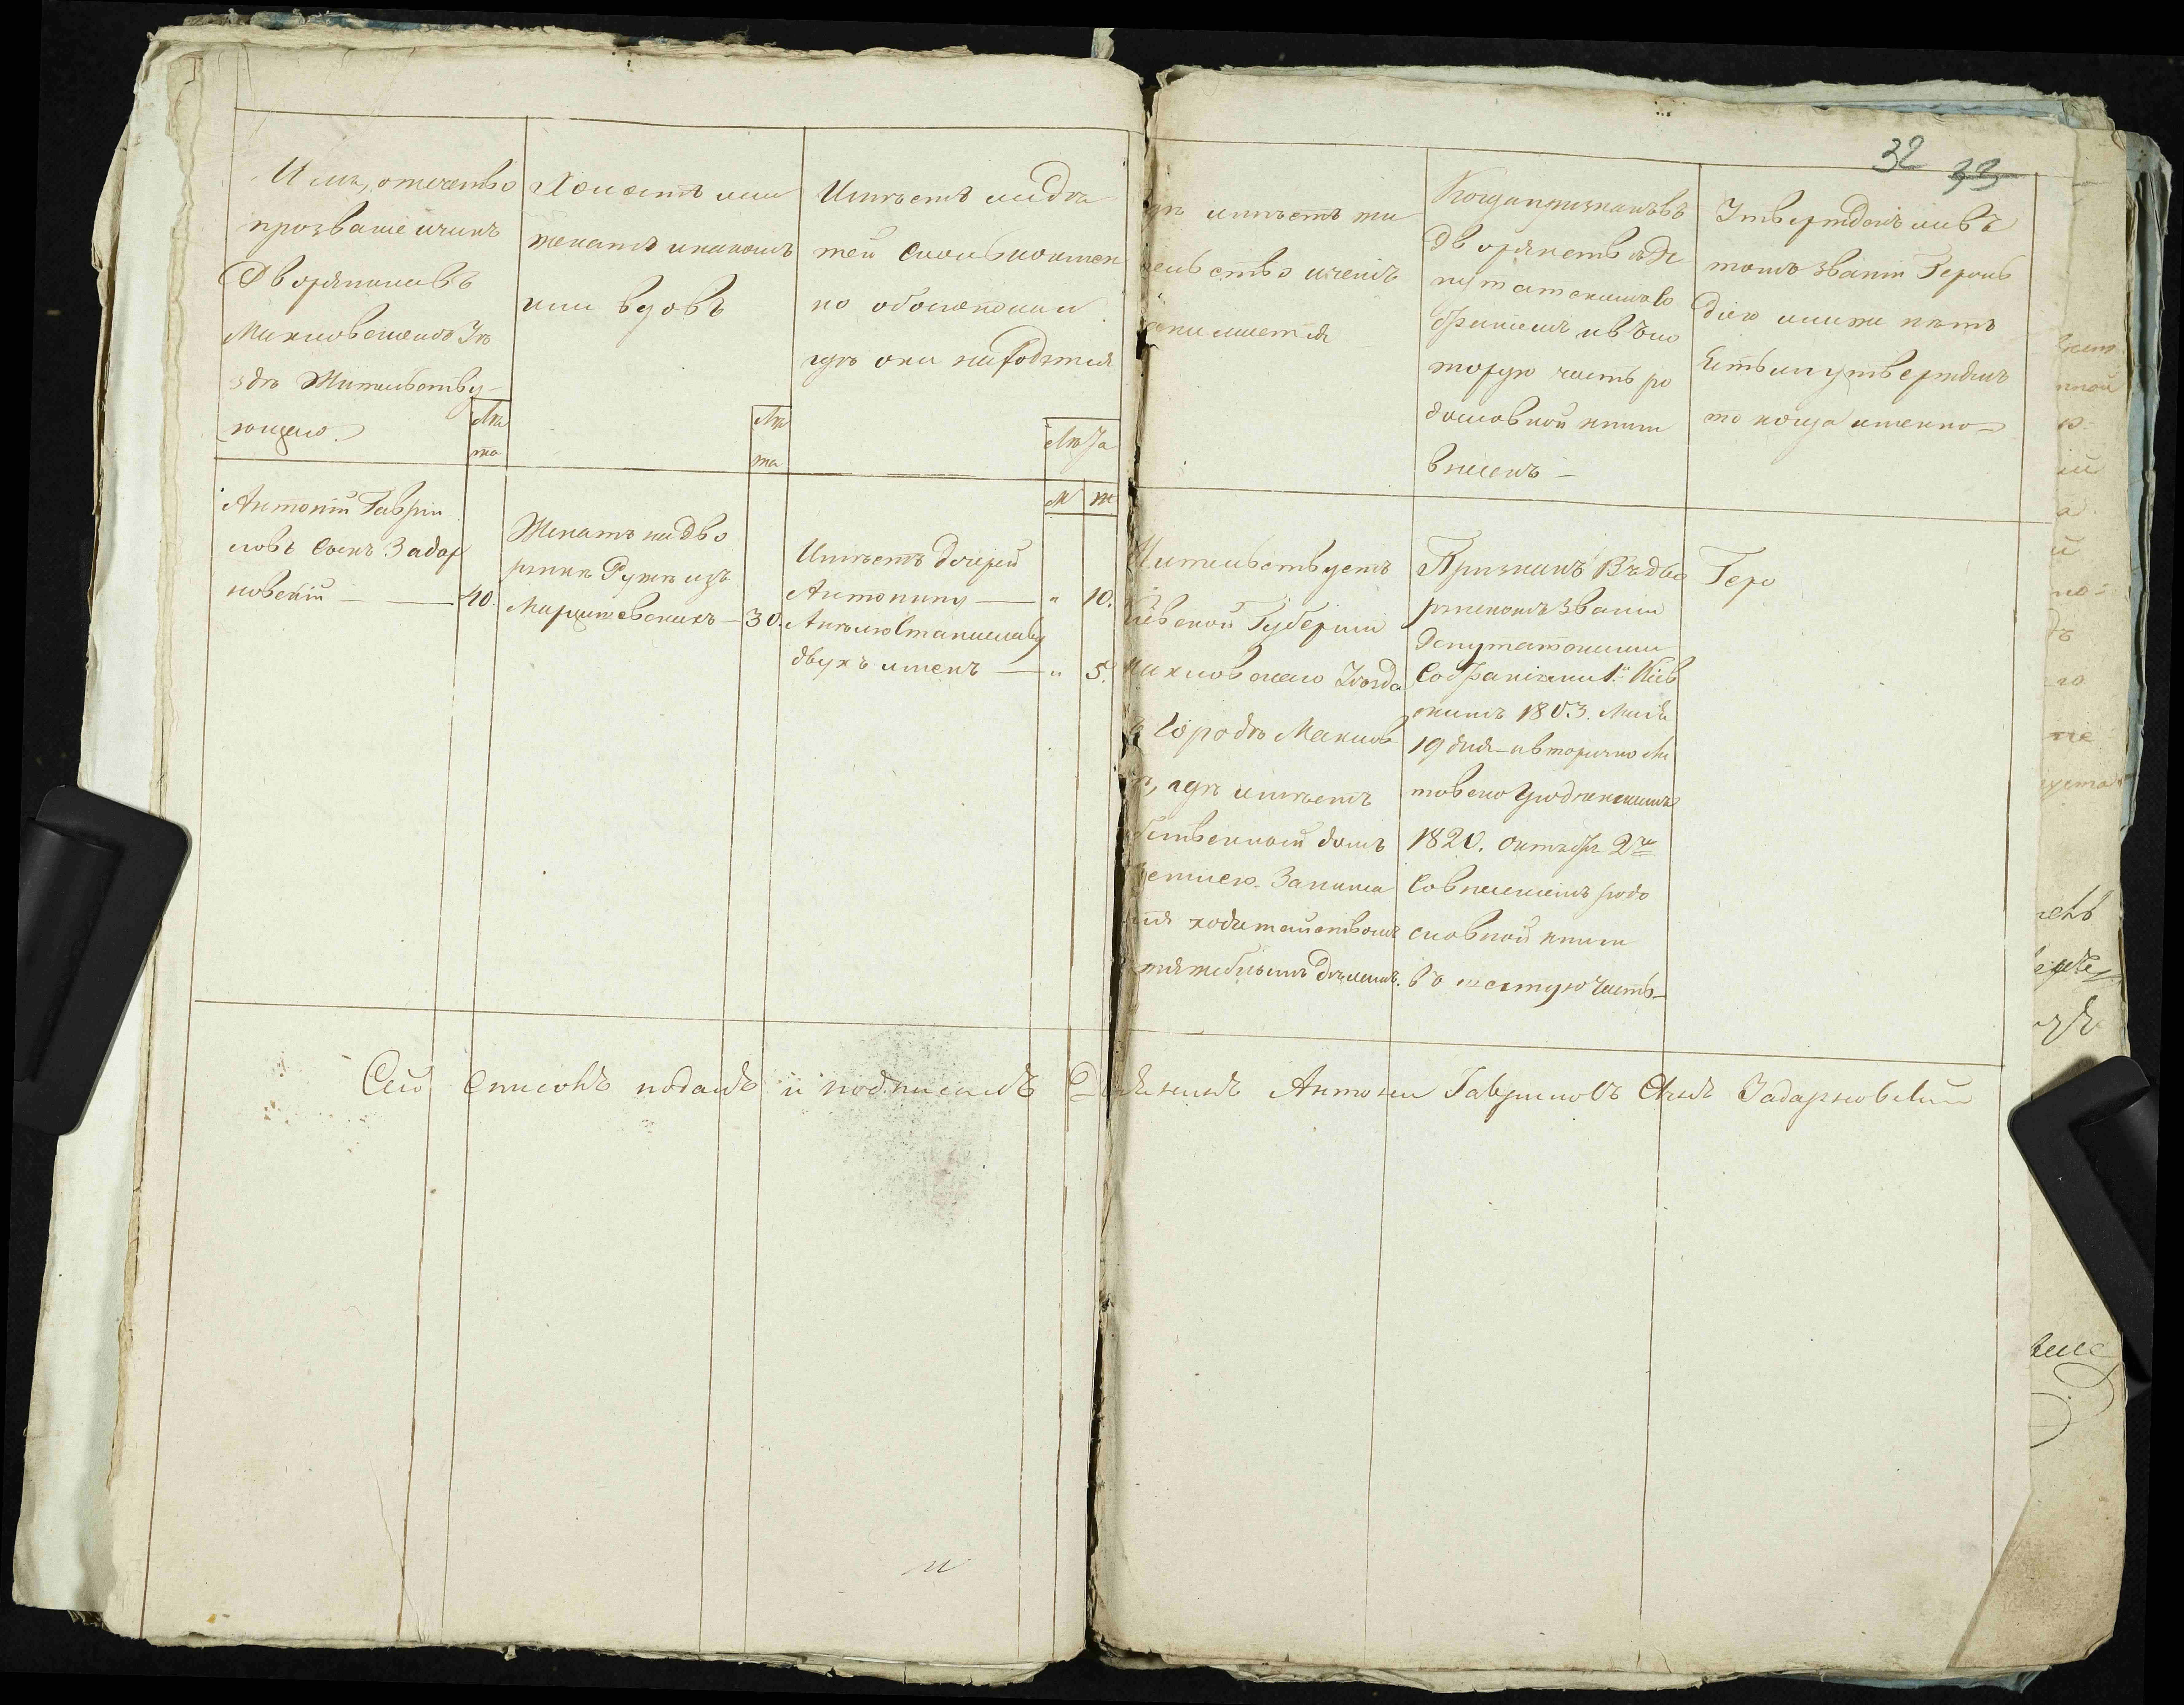 32 33
Имя, отечество
прозваніе и чинъ
Дворянина въ
Махновскомъ Уѣ
здѣ Жительству-
ющаго.
Лѣ
та
Холостъ или
женатъ и на комъ
или вдовъ
Лѣ
та
Имѣетъ ли дѣ
тей сколько имен
но обоего пола и
гдѣ они находятся
Лѣта
М ж
гдѣ имѣетъ жи
тельство и чемъ
занимается
Когда признанъ въ
Дворянствѣ Де
путатскимъ Со
браніемъ и въ ко
торую часть ро
дословной книги
внесенъ —
Утвержденъ ли въ
томъ званіи Героль
діею или же нѣтъ
Естьли утвержденъ
то когда именно
Антоній Гаври
ловъ сынъ Задар
новскій — 40.
Женатъ на Дво
рянкѣ Рузѣ изъ
— 30.
Имѣетъ дочерей
Антонину — " 10.
Анѣлю Станиславу
двухъ именъ — " 5.
Жительствуетъ
Кіевской Губерніи
Махновскаго Уѣзда
въ городѣ Махнов
кѣ, гдѣ имѣетъ
собственный домъ
Занима
ется ходатайствомъ
тяжебнымъ дѣламъ.
Признанъ въ дво
рянскомъ званіи
Депутатскими
Собраніями 1.е Кіев
скимъ 1803. Маія
19 дня и вторично Ли
товско Гродненскимъ
1820. октября 2го
со внесеніемъ родо
словной книги
въ шестую часть —
Геро
Сей списокъ подалъ и подписалъ Дворянинъ Антони Гавриловъ Сынъ Задарновскій